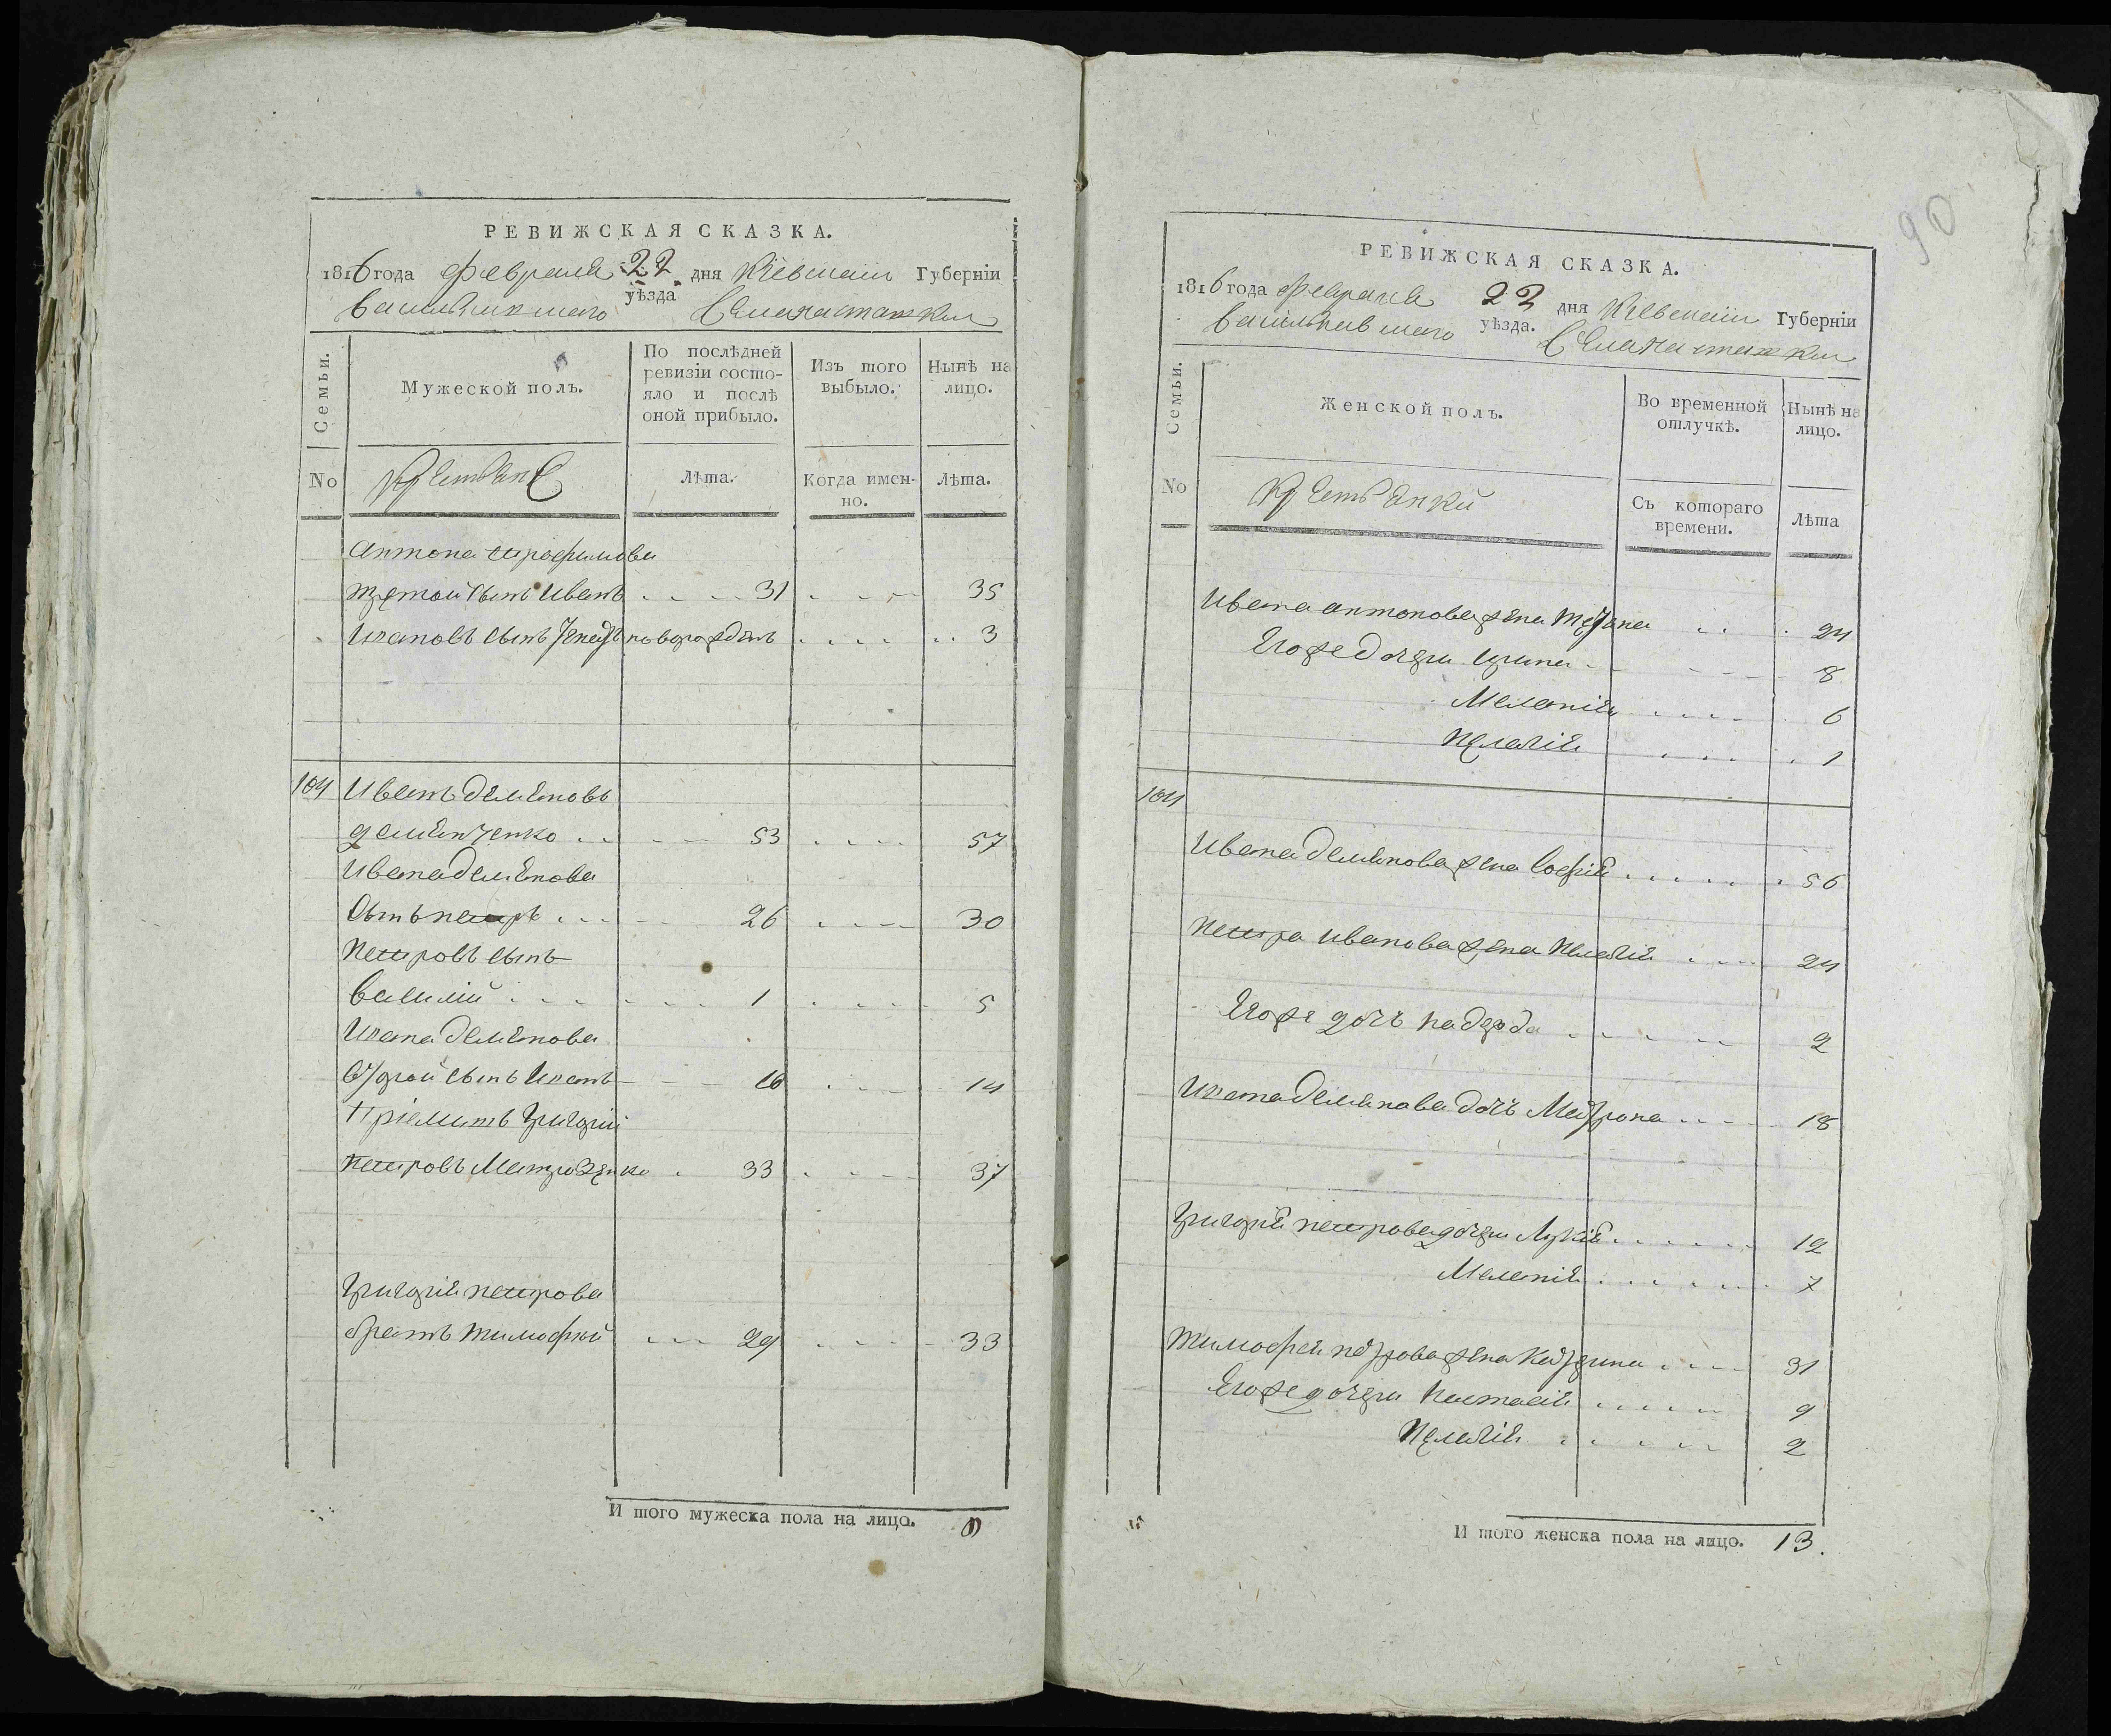 РЕВИЖСКАЯ СКАЗКА.
1816 года февраля 22 дня Киевской Губернiи
Васильковского уѣзда Села
Семьи.
Мужеской полъ.
По послѣдней ревизiи состояло и послѣ оной прибыло.
Изъ того выбыло.
Нынѣ на лицо.
No
Крестьяне
Лѣта.
Когда именно.
Лѣта.
Антона Трофимова
третой сынъ Иванъ 31 35
Ивановъ сынъ новорожденъ 3
104 Иванъ Демяновъ
Демянченко 53 57
Ивана Демянова
сынъ Петръ 26 30
Петровъ сынъ
Василий 1 5
Ивана Демянова
Второй сынъ Иванъ 10 14
Приемишъ Григорий
Петровъ 33 37
Григория Петрова
братъ Тимофей 29 33
И того мужеска пола на лицо.
90
РЕВИЖСКАЯ СКАЗКА.
1816 года февраля 22 дня Киевской Губернiи
Васильковского уѣзда. Села
Семьи.
Женской полъ.
Во временной отлучкѣ.
Нынѣ на лицо.
No
Крестьянки
Съ котораго времени.
Лѣта
Ивана Антонова жена Татяна 24
Егоже дочери Ирина 8
Мелания 6
Пелагия 1
104
Ивана Демянова жена София 56
Петра Иванова жена Пелагия 24
Егоже дочь 2
Ивана Демянова дочь Матрона 18
Григория Петрова дочери Лукия 12
Мелания 7
Тимофея Петрова жена Катерина 31
Егоже дочери Настасия 9
Пелагия 2
И того женска пола на лицо. 13.